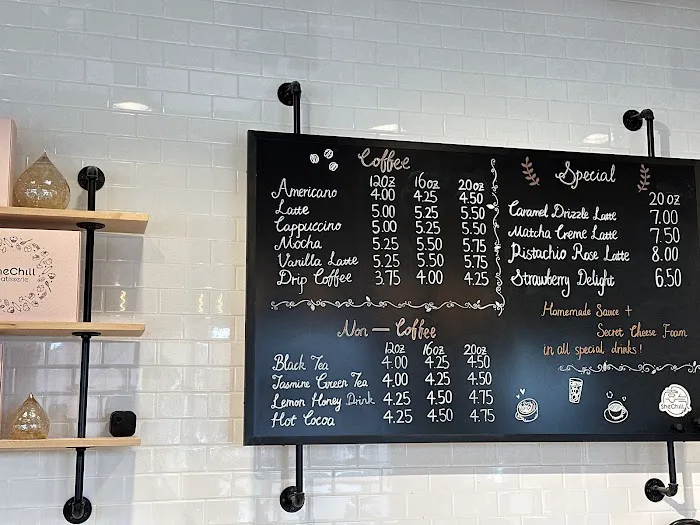 sheChill
patisserie
Coffee
12oz 16oz 20oz
Americano 4.00 4.25 4.50
Latte 5.00 5.25 5.50
Cappuccino 5.00 5.25 5.50
Mocha 5.25 5.50 5.75
Vanilla Latte 5.25 5.50 5.75
Drip Coffee 3.75 4.00 4.25
Non - Coffee
12oz 16oz 20oz
Black Tea 4.00 4.25 4.50
Jasmine Green Tea 4.00 4.25 4.50
Lemon Honey Drink 4.25 4.50 4.75
Hot Cocoa 4.25 4.50 4.75
Special
20 oz
Caramel Drizzle Latte 7.00
Matcha Creme Latte 7.50
Pistachio Rose Latte 8.00
Strawberry Delight 6.50
Homemade Sauce +
Secret Cheese Foam
in all special drinks!
sheChill